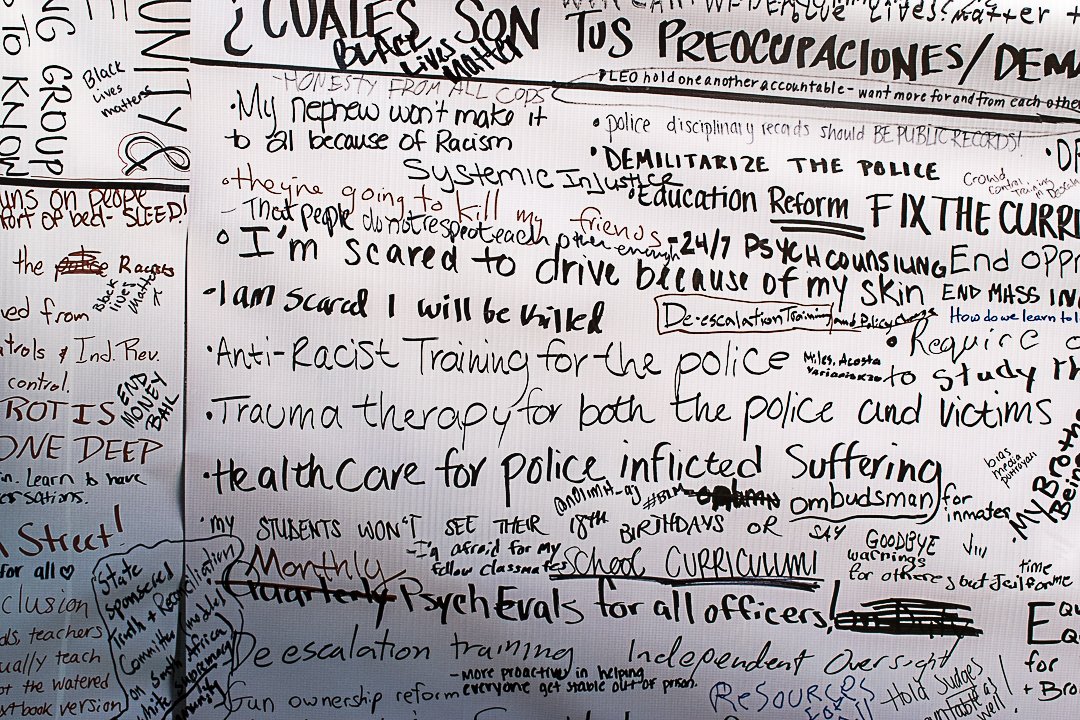 UNITY &
NG GROUP
TO KNOW
Black
Lives
matters
uns on people
ort of bed - SLEEP!
the police Racists
Black
lives
matter
ved from
trols & Ind. Rev.
control.
END
MONEY
BAIL
ROT IS
ONE DEEP
n. Learn to have
ersations.
Street!
for all♡
clusion
ds, teachers
ually teach
ot the watered
xtbook version
State
Sponsored
Truth + Reconciliation
Committee modeled
on South Africa
white supremacy
¿CUALES SON TUS PREOCUPACIONES/DEMA
Black
Lives
Matter
Lives matter +
LEO hold one another accountable - want more for and from each other
-HONESTY FROM ALL COPS
•My nephew won't make it
to all because of Racism
•police disciplinary records should BE PUBLIC RECORDS!
•DEMILITARIZE THE POLICE
Systemic Injustice
Crowd
control
training
•Education Reform FIX THE CURRI
•they're going to kill my friends
- That people do not respect each other enough
-24/7 PSYCH COUNSILING
End oppr
•I'm scared to drive because of my skin
END MASS IN
-I am scared I will be killed
De-escalation Training and Policy
How do we learn to l
•Require
to study th
•Anti-Racist Training for the police
Miles, Acosta
•Trauma therapy for both the police and victims
•HealthCare for police inflicted Suffering
bias
media
My Brothe
Being
#BLM
ombudsman for
inmates
•my STUDENTS WON'T SEE THEIR 18TH BIRTHDAYS OR SAY GOODBYE
-I'm afraid for my
fellow classmates
School CURRICULUM!
warnings
for others but Jail for me
time
Monthly
Quarterly Psych Evals for all officers!
De escalation training
Independent Oversight
-more proactive in helping
everyone get stable out of prison.
Gun ownership reform
Resources
Hold Judges
accountable as
well!
Equ
Eq
for
+ Bro